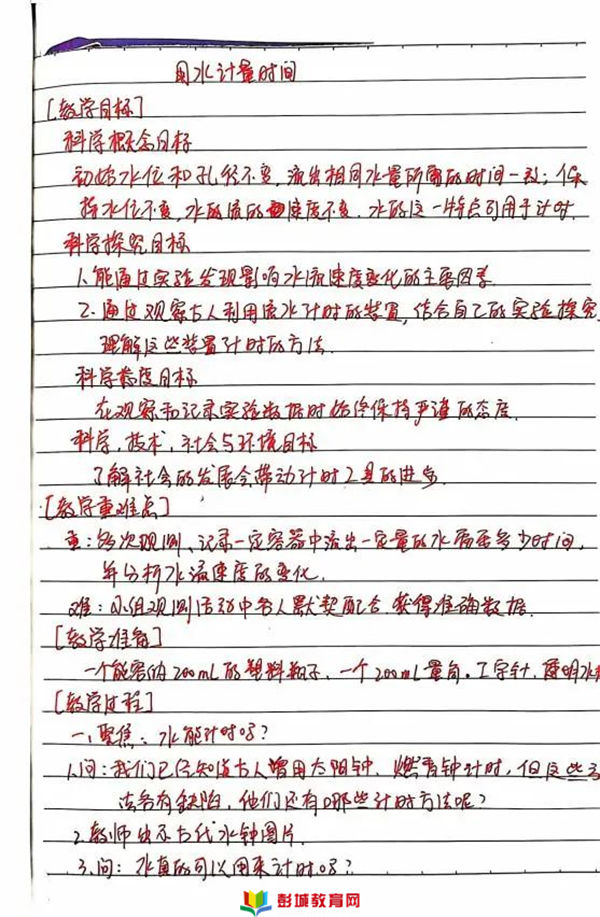 用水计量时间
[教学目标]
科学概念目标
初始水位和孔径不变,流出相同水量所需的时间一致;保
持水位不变,水的流的速度不变.水的这一特点可用于计时.
科学探究目标
1.能通过实验发现影响水流速度变化的主要因素
2.通过观察古人利用流水计时的装置,结合自己的实验探究,
理解这些装置计时的方法.
科学态度目标
在观察和记录实验数据时始终保持严谨的态度.
科学,技术,社会与环境目标
了解社会的发展会带动计时工具的进步.
[教学重难点]
重:多次观测、记录一定容器中流出一定量的水需要多少时间,
并分析水流速度的变化.
难:小组观测活动中各人默契配合.获得准确数据.
[教学准备]
一个能容纳200mL的塑料瓶子,一个200mL量筒。工字针,透明水
[教学过程]
一、聚焦:水能计时吗?
1.问:我们已经知道古人曾用太阳钟、燃香钟计时,但这些
法各有缺陷,他们还有哪些计时方法呢?
2.教师出示古代水钟图片.
3.问:水真的可以用来计时吗?
彭城教育网